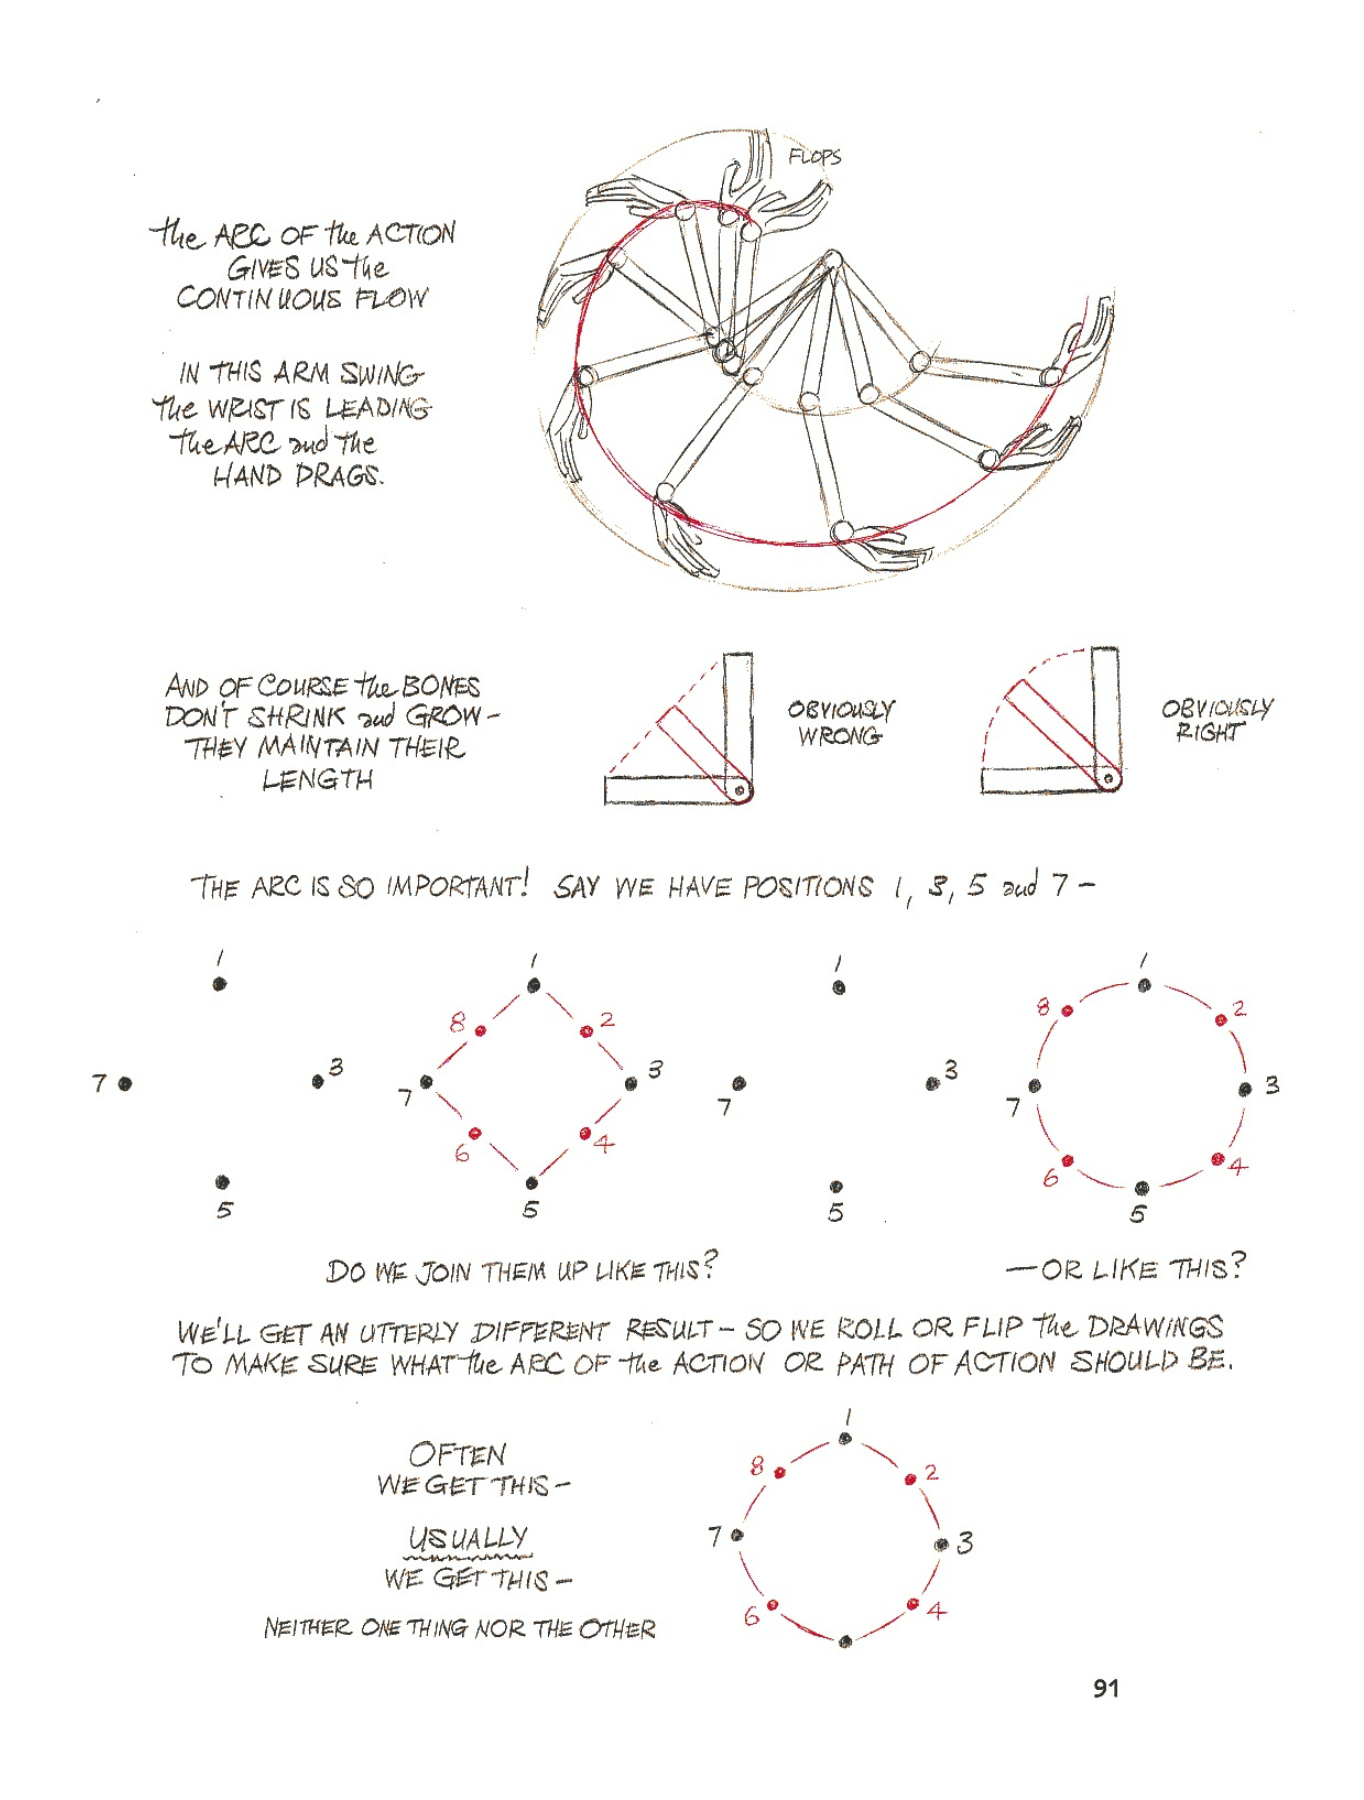 FLOPS
the ARC OF the ACTION
GIVES US the
CONTINUOUS FLOW
IN THIS ARM SWING
the WRIST IS LEADING
the ARC and the
HAND DRAGS.
AND OF COURSE the BONES
DON'T SHRINK and GROW –
THEY MAINTAIN THEIR
LENGTH
OBVIOUSLY
WRONG
OBVIOUSLY
RIGHT
THE ARC IS SO IMPORTANT! SAY WE HAVE POSITIONS 1, 3, 5 and 7 –
1
3
7
5
1
8
2
3
7
6
4
5
1
3
7
5
1
8
2
3
7
6
4
5
DO WE JOIN THEM UP LIKE THIS?
—OR LIKE THIS?
WE'LL GET AN UTTERLY DIFFERENT RESULT – SO WE ROLL OR FLIP the DRAWINGS
TO MAKE SURE WHAT the ARC OF the ACTION OR PATH OF ACTION SHOULD BE.
OFTEN
WE GET THIS –
USUALLY
WE GET THIS –
NEITHER ONE THING NOR THE OTHER
1
8
2
7
3
6
4
91